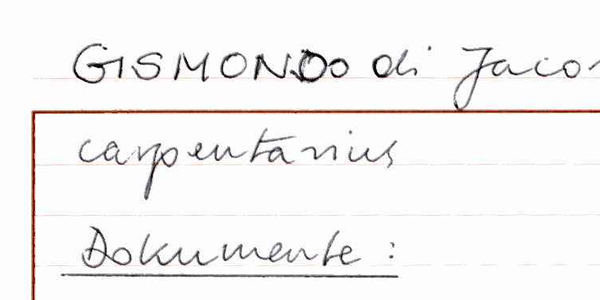 GISMONDO di Jaco
carpentarius
Dokumente :